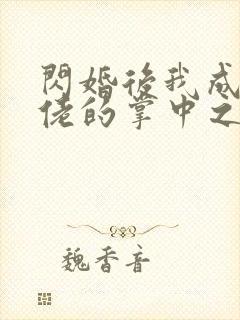 閃婚後我成
佬的掌中之
魏香音